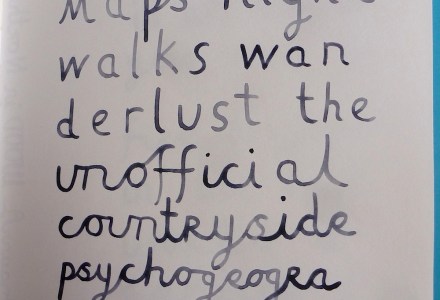 maps night
walks wan
derlust the
unofficial
countryside
psychogeogra